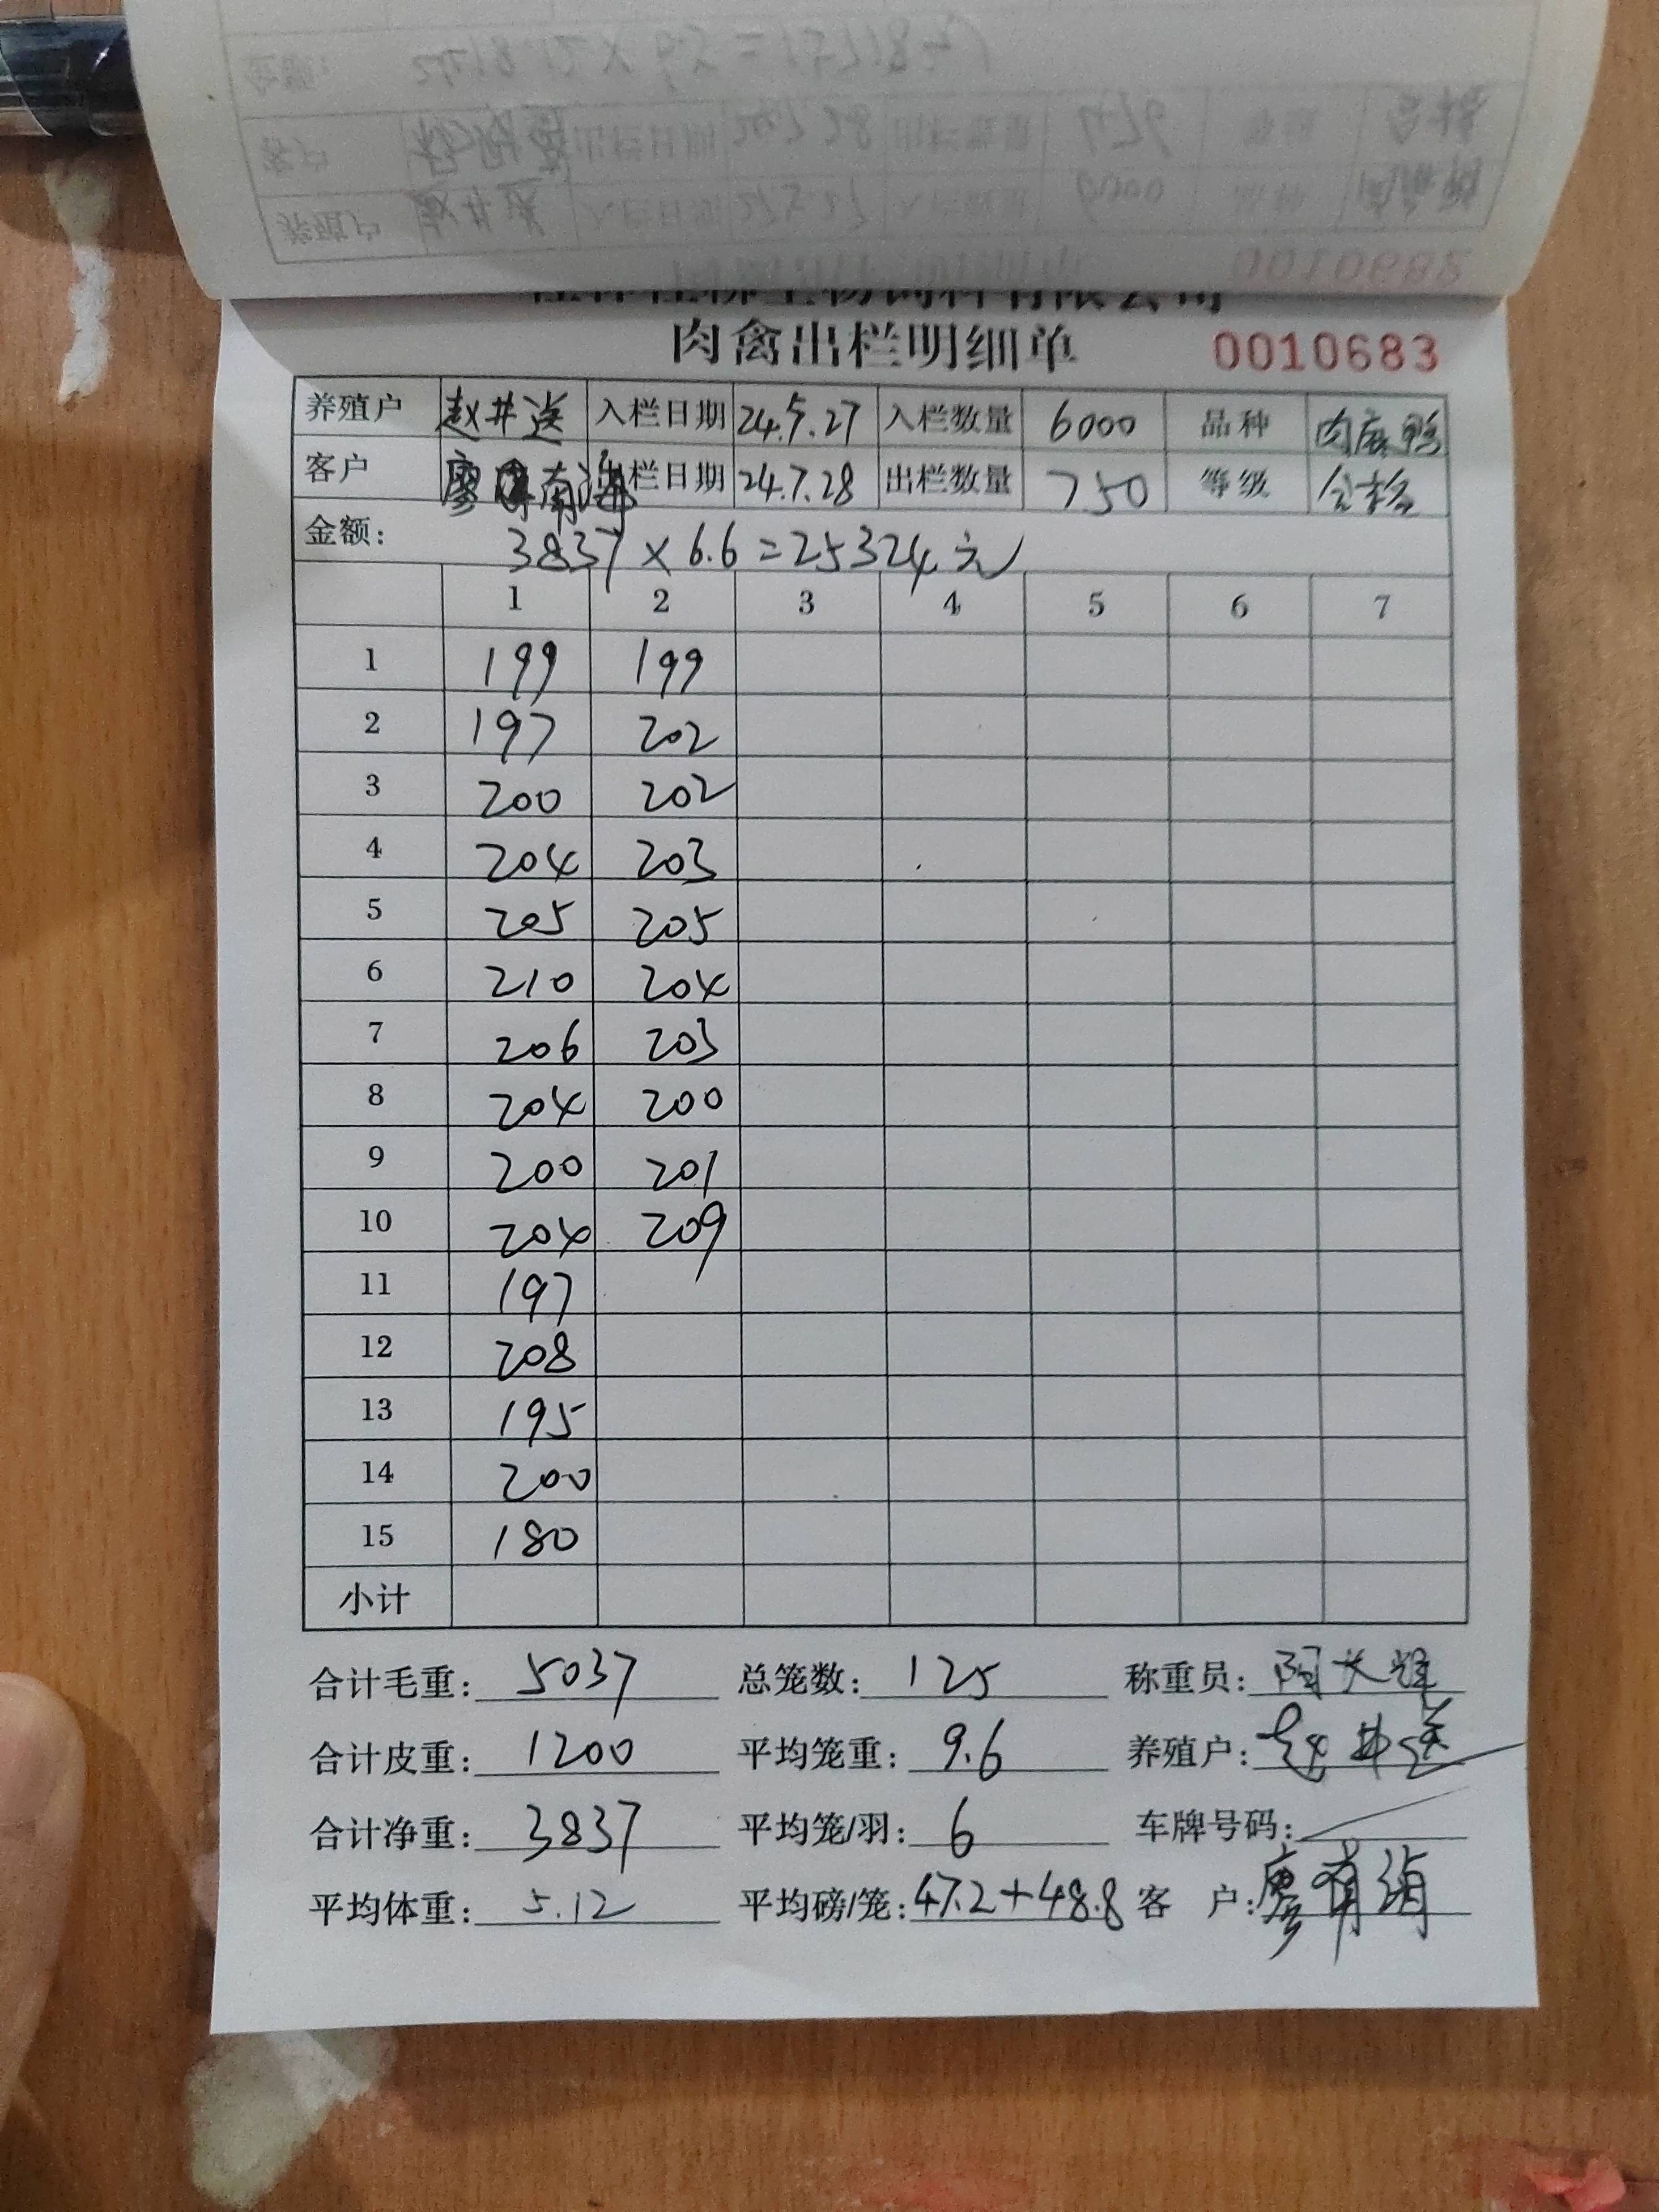 肉禽出栏明细单 0010683
养殖户 赵井送 入栏日期 24.5.27 入栏数量 6000 品种 肉麻鸭
客户 廖 南海 出栏日期 24.7.28 出栏数量 750 等级 合格
金额: 3837×6.6=25324元
1 2 3 4 5 6 7
1 199 199
2 197 202
3 200 202
4 204 203
5 205 205
6 210 204
7 206 203
8 204 200
9 200 201
10 204 209
11 197
12 208
13 195
14 200
15 180
小计
合计毛重: 5037 总笼数: 125 称重员:
合计皮重: 1200 平均笼重: 9.6 养殖户: 赵井送
合计净重: 3837 平均笼/羽: 6 车牌号码:
平均体重: 5.12 平均磅/笼: 47.2+48.8 客 户: 廖